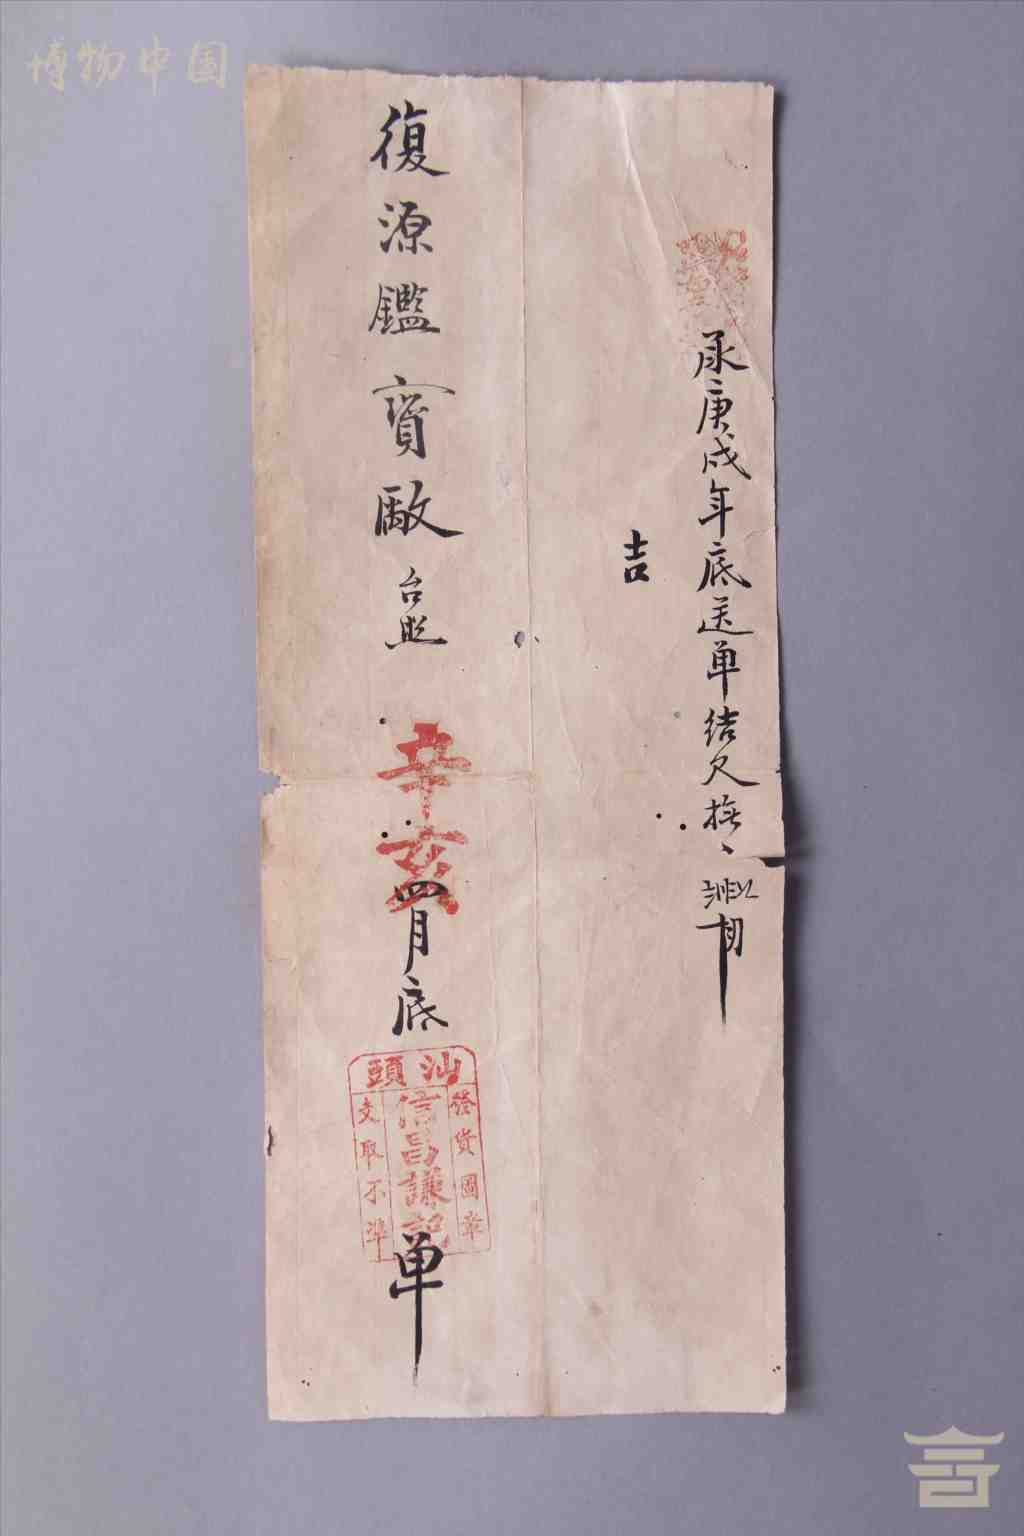 博物中国
承庚戌年底送單結欠
吉
復源鑑寶廠台照
辛亥四月底單
汕頭
發貨圖章
信昌謙記
支取不準